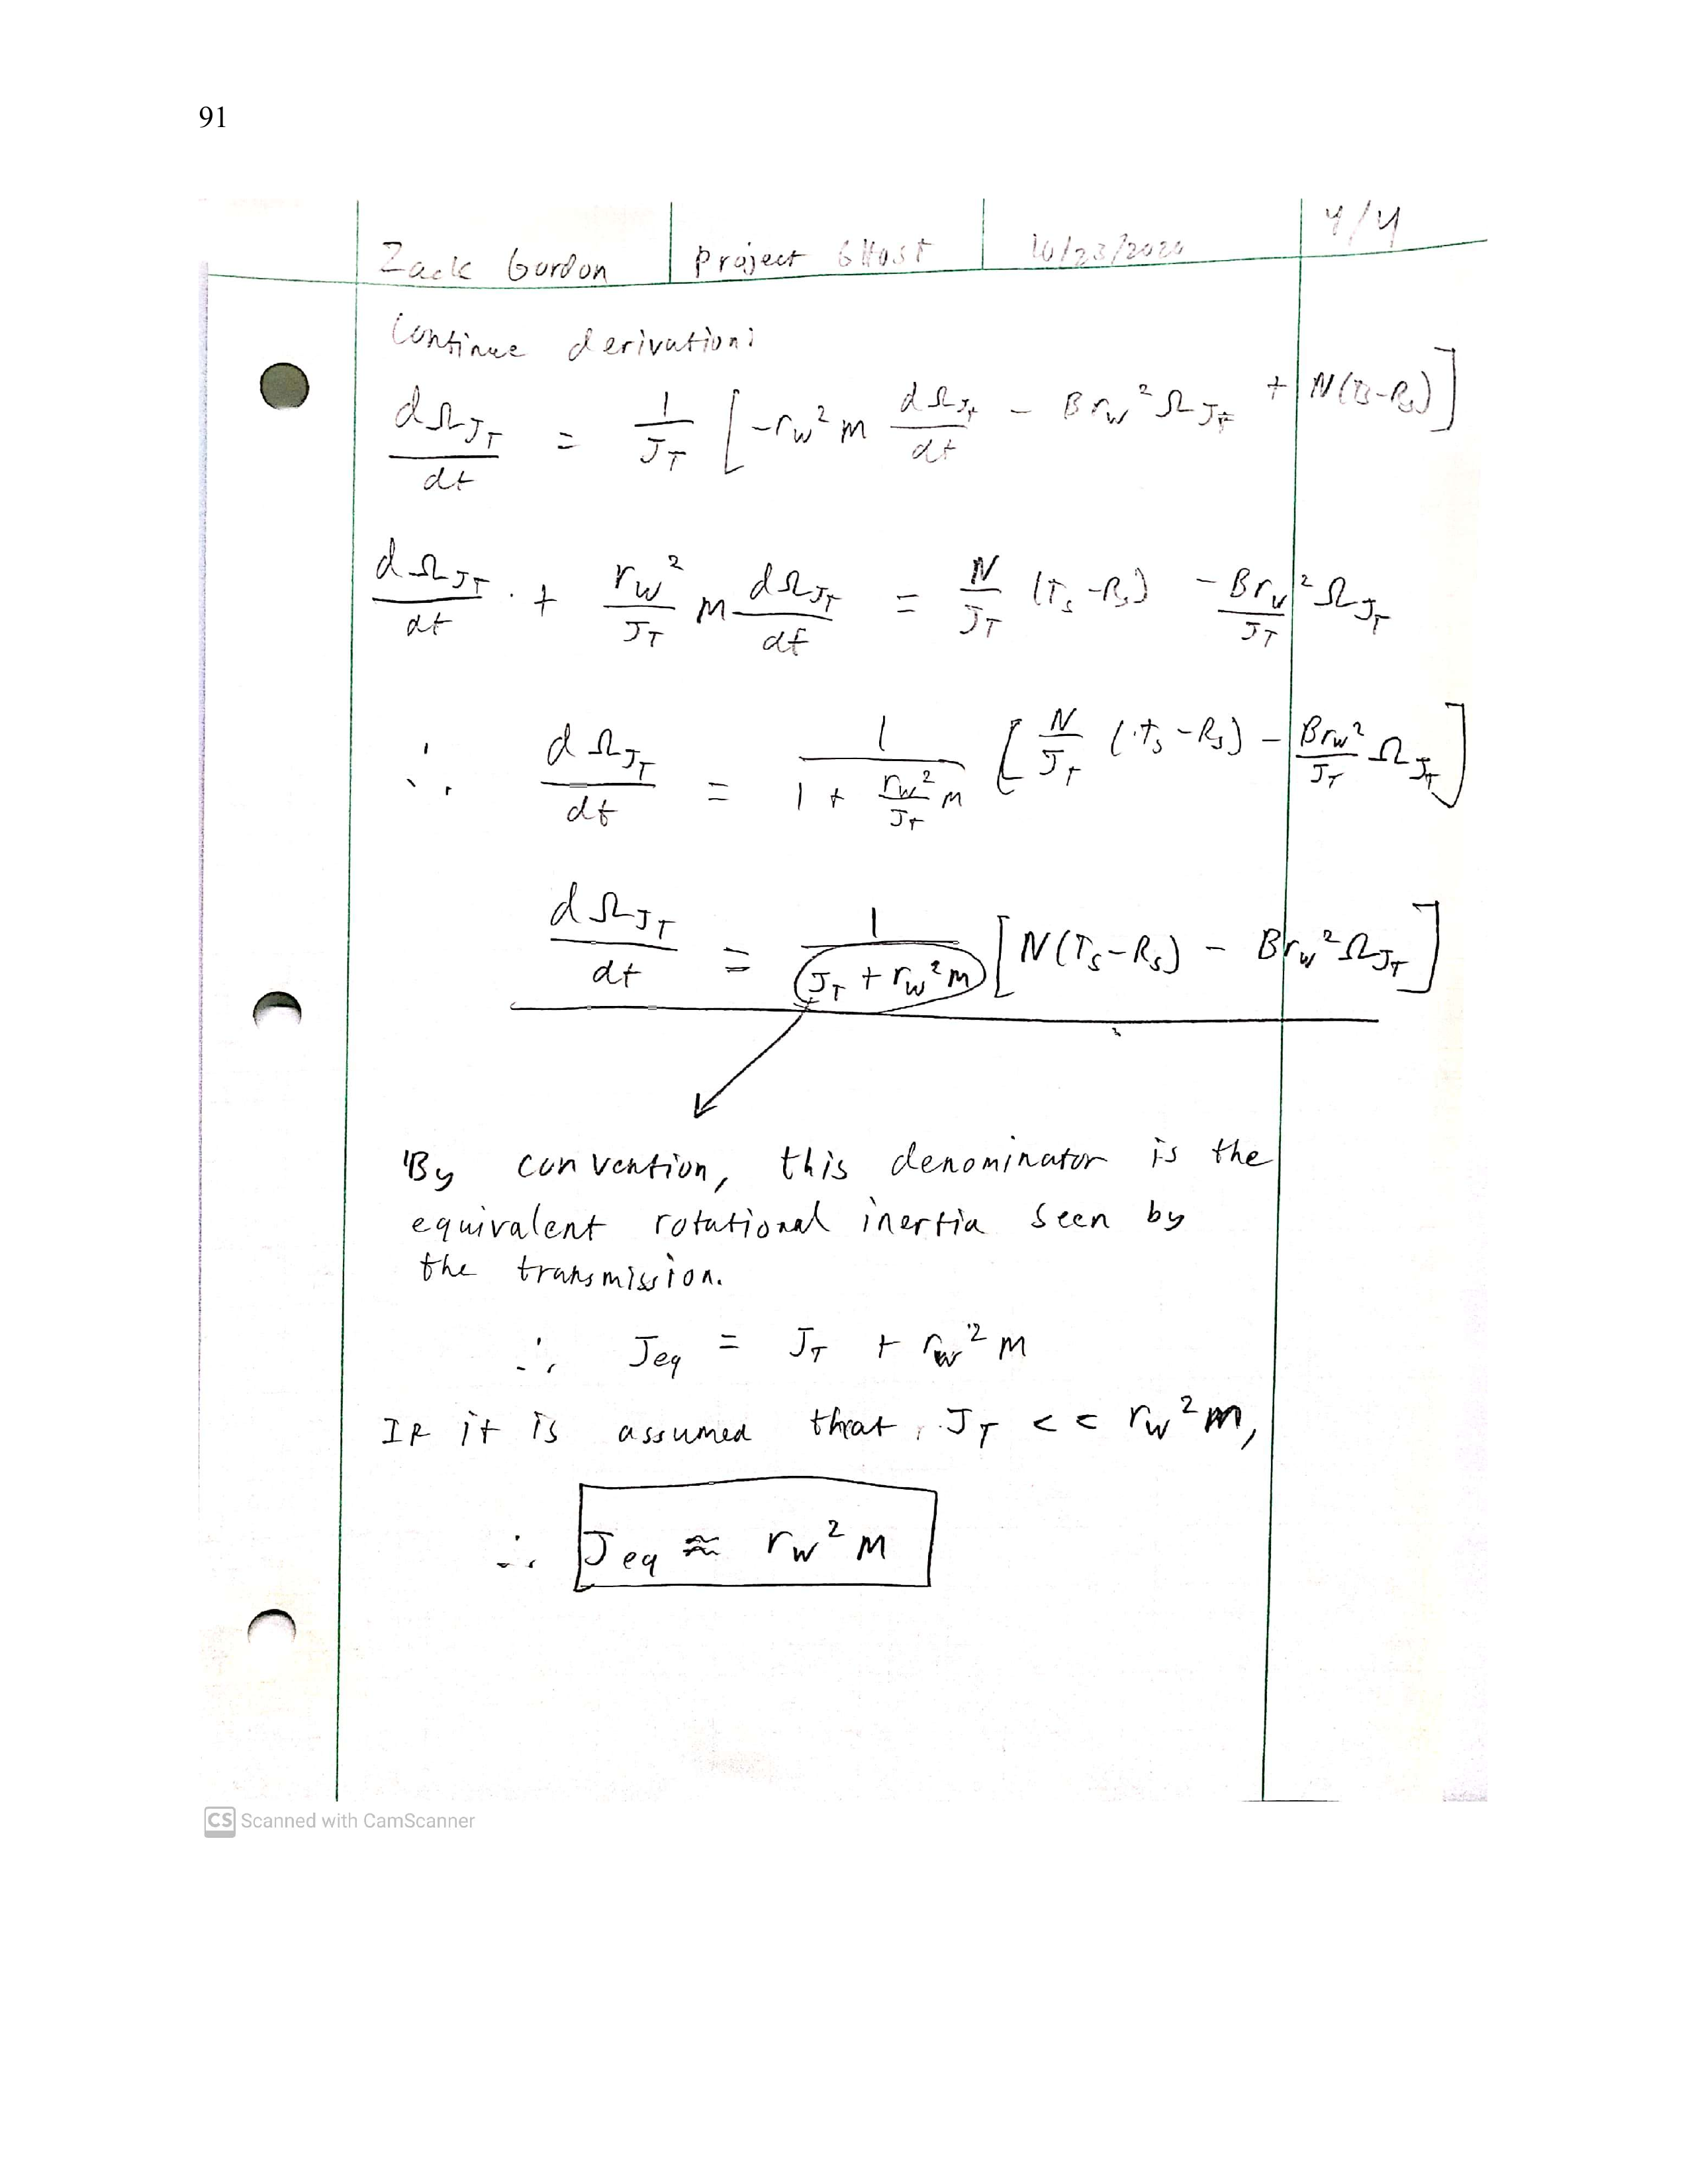 91
Zack Gordon Project GHost 10/23/2020 4/4
Continue derivation:
dΩ_JT/dt = 1/J_T [-r_w² m dΩ_JT/dt - B r_w² Ω_JT + N(Ts-Rs)]
dΩ_JT/dt + r_w²/J_T m dΩ_JT/dt = N/J_T (Ts-Rs) - B r_w²/J_T Ω_JT
∴ dΩ_JT/dt = 1/(1 + r_w²/J_T m) [N/J_T (Ts-Rs) - B r_w²/J_T Ω_JT]
dΩ_JT/dt = 1/(J_T + r_w² m) [N(Ts-Rs) - B r_w² Ω_JT]
By convention, this denominator is the
equivalent rotational inertia seen by
the transmission.
∴ Jeq = J_T + r_w² m
If it is assumed that J_T << r_w² m,
∴ Jeq ≈ r_w² m
CS Scanned with CamScanner